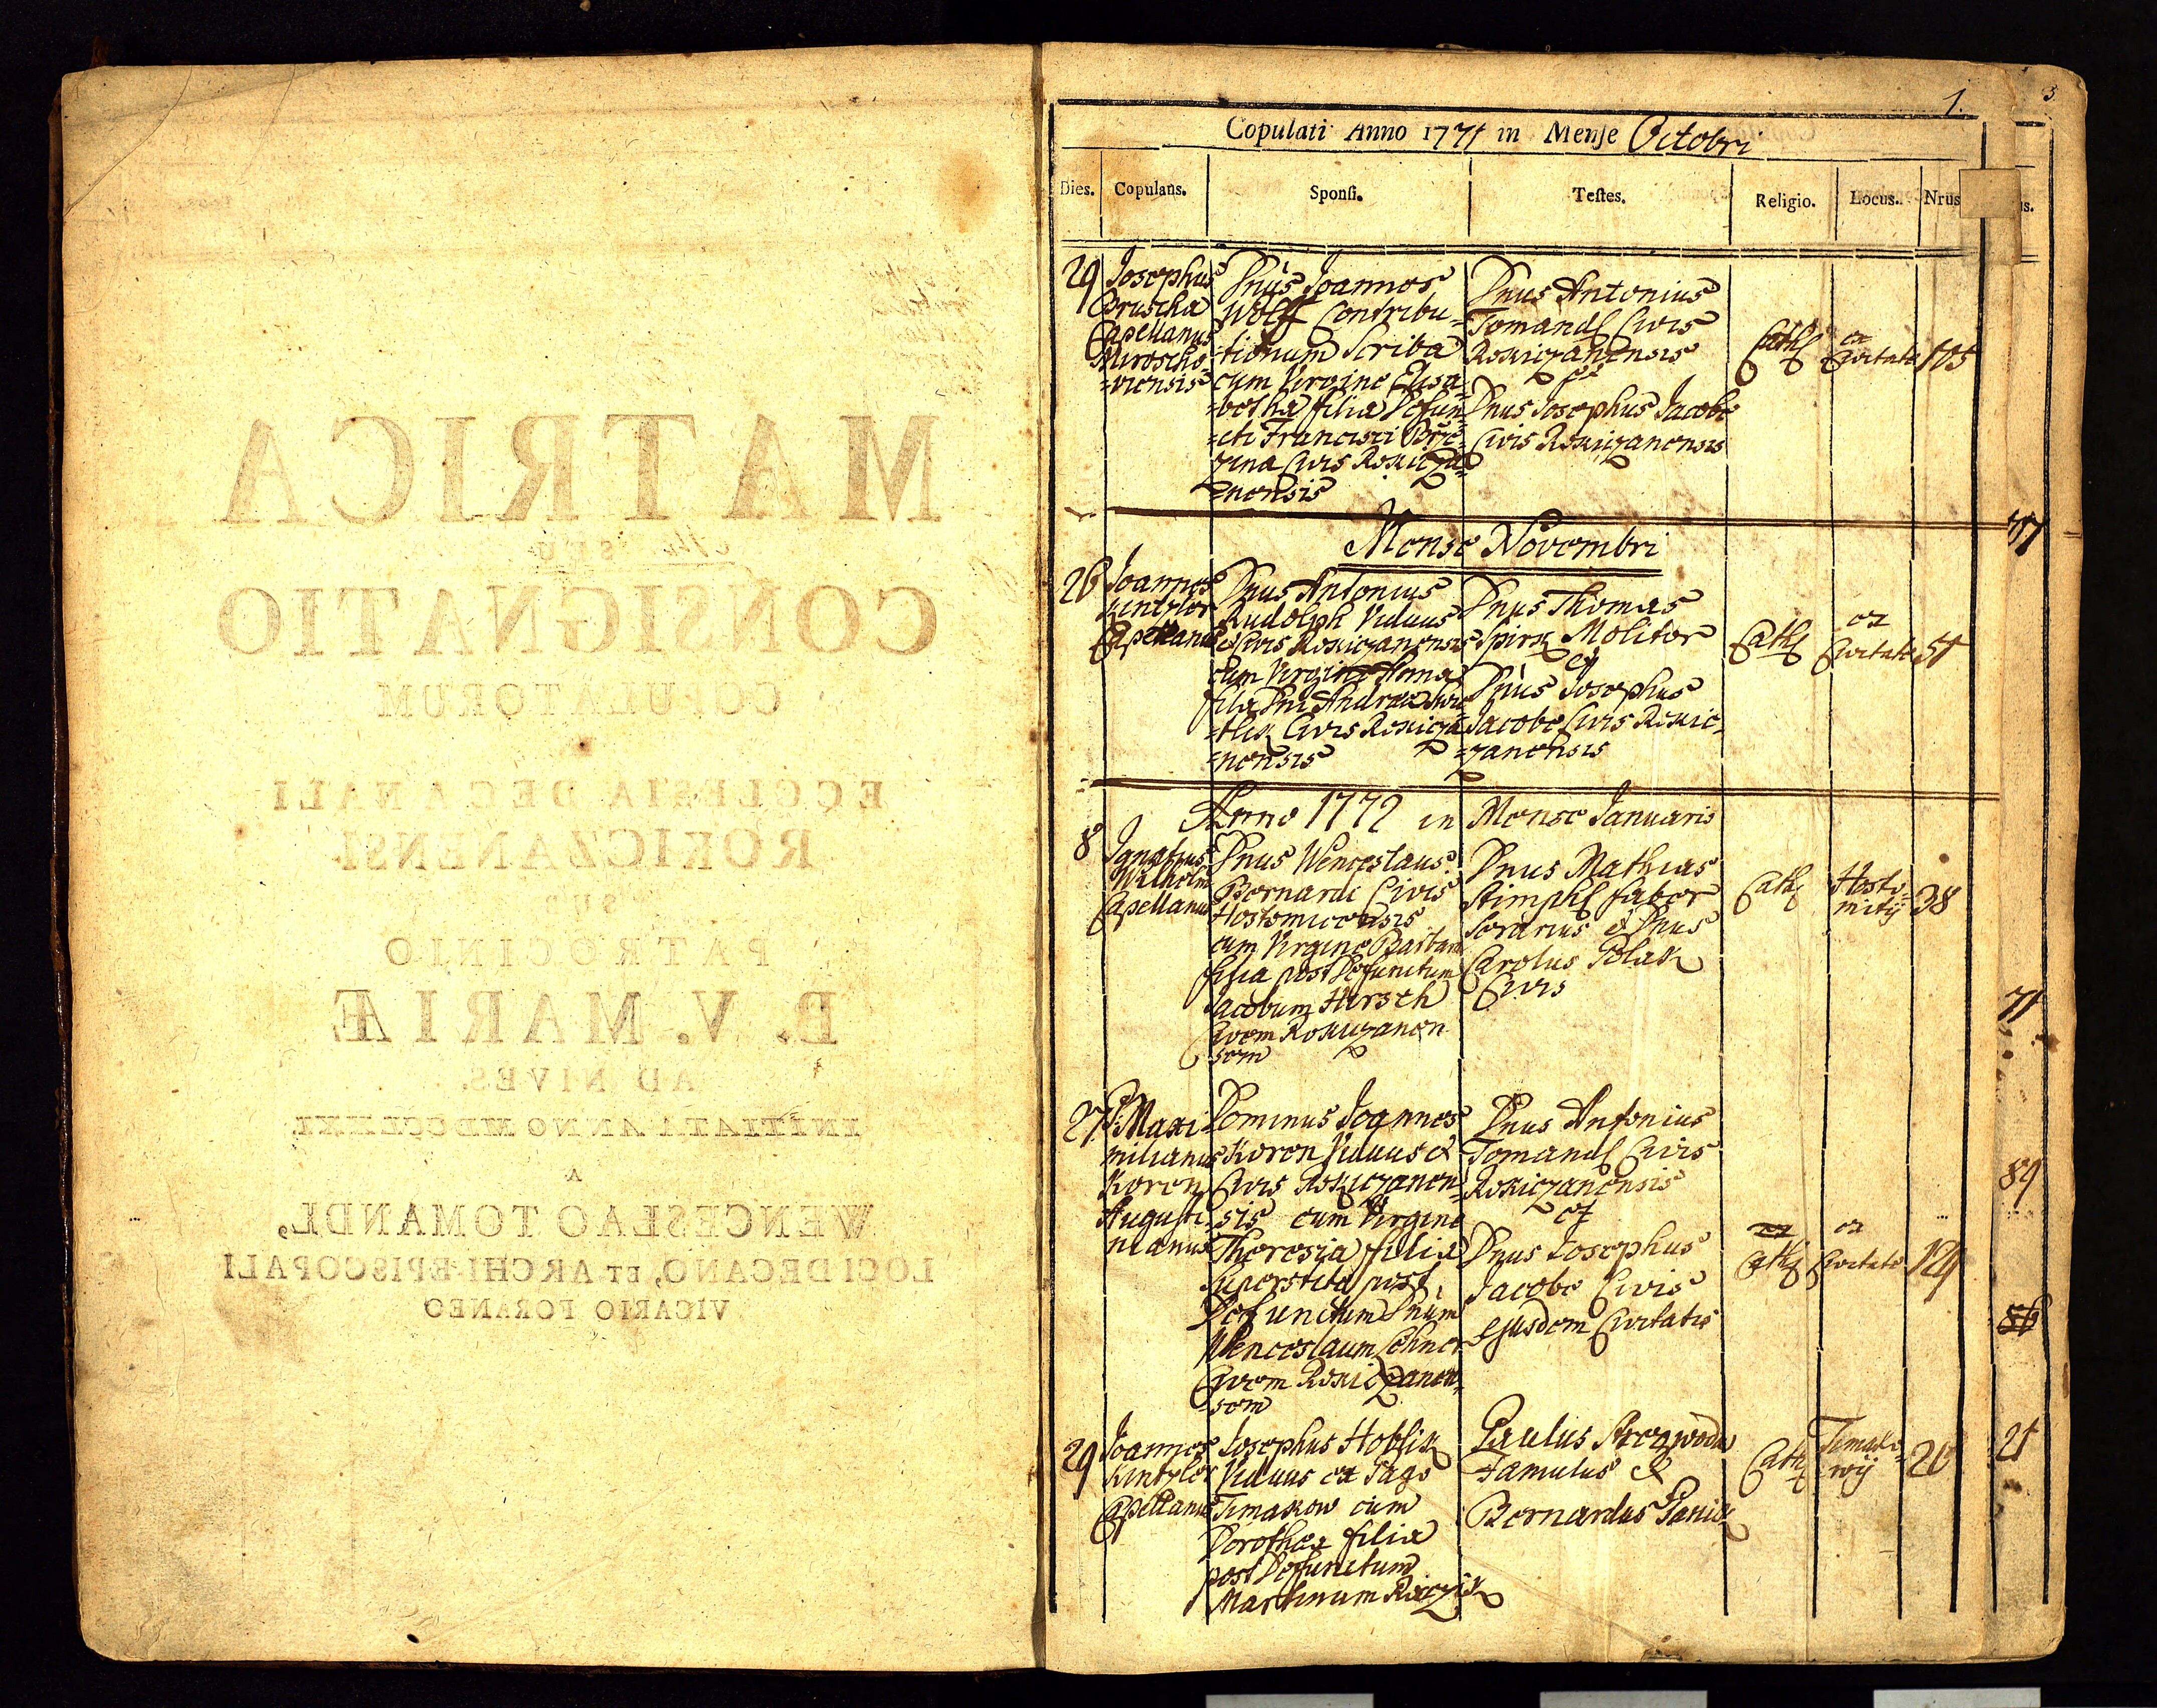 MATRICA
SEU
CONSIGNATIO
COPULATORUM
ECCLESIA DECANALI
ROKICZANENSI
SUB
PATROCINIO
B. V. MARIÆ
AD NIVES,
INITIATA ANNO MDCCLXXI
A
WENCESLAO TOMANDL,
LOCI DECANO, ET ARCHI-EPISCOPALI
VICARIO FORANEO
1.
3
Copulati Anno 1771 in Mense Octobri
Dies. Copulans. Sponsi. Testes. Religio. Locus. Nrus
29
Josephus
Capellanus
Mirescho-
=viensis
Dnus Joannes
Wolff Contribu=
=tionum Scriba
cum Virgine Elisa=
=betha filia Defun=
=cti Francisci Brze=
zina Civis Rokicza=
=nensis
Dnus Antonius
Tomandl Civis
Rokiczanensis
Dnus Josephus Jacobe
Civis Rokiczanensis
Cath
ex
Civitate
105
Mense Novembri
26
Joannes
Kintzlor
Capellanus
Dnus Antonius
Rudolph Viduus
& Civis Rokiczanensis
cum Virgine Anna
filia Dni Andreae
Civis Rokicza
=nensis
Dnus Thomas
Spirk Molitor
et
Dnus Josephus
Jacobe Civis Rokic=
=zanensis
Cath
ex
Civitate
51
Anno 1772 in Mense Januario
8
Ignatius
Wilhelm
Capellanus
Dnus Wenceslaus
Bernardi Civis
Hostomicensis
cum Virgine Barbara
filia post Defunctum
Jacobum Hirsch
Civem Rokiczanen
sem
Dnus Mathias
Stimpfl faber
Serarius & Dnus
Carolus Polak
Civis
Cath
Hosto=
mitij
38
27
P: Maxi=
milianus
Koren
Augusti=
nianus
Dominus Joannes
Koren Viduus &
Civis Rokiczanen=
sis cum Virgine
Theresia filia
superstita post
Defunctum Dnum
Wenceslaum Lehner
Civem Rokiczanen=
=sem
Dnus Antonius
Tomandl Civis
Rokiczanensis
et
Dnus Josephus
Jacobe Civis
ejusdem Civitatis
Cath
ex
Civitate
129
29
Joannes
Kintzler
Capellanus
Josephus Hoblik
Viduus ex Pago
Timakow cum
Dorothea filia
post Defunctum
Martinum Raczik
Paulus
Famulus &
Bernardus Panik
Cath
Timako=
wij
20
71
89
86
21